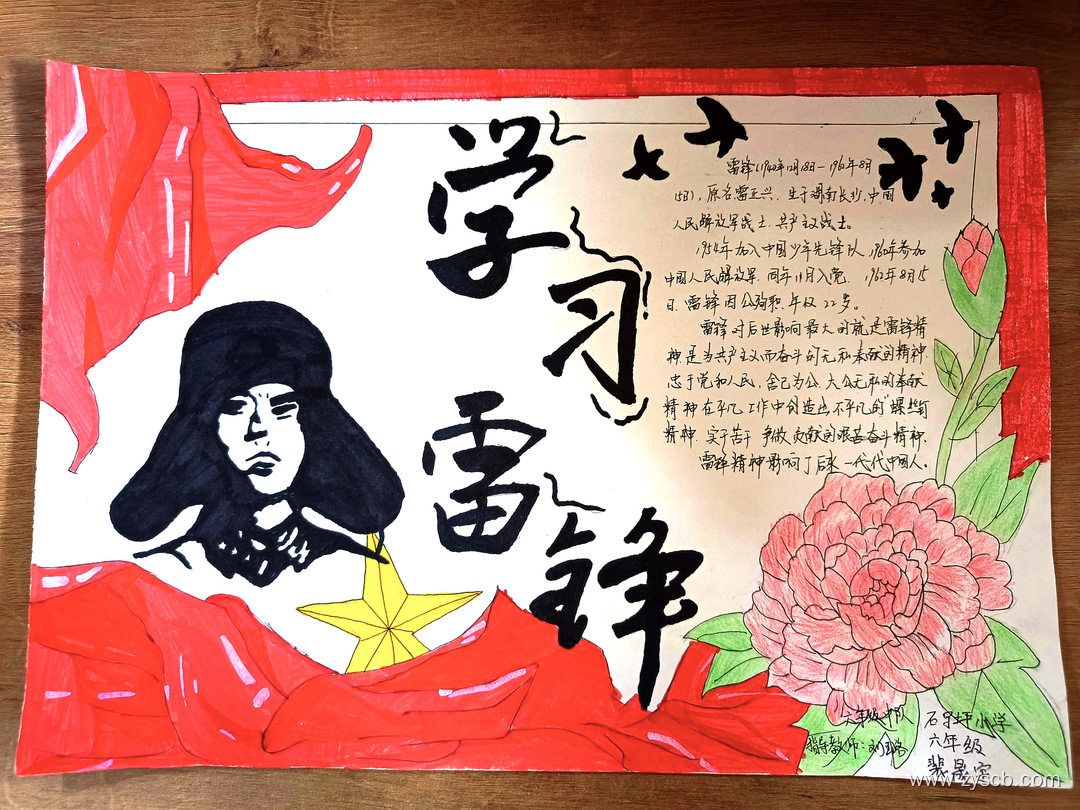 学习
雷锋
雷锋(1940年12月18日—1962年8月
15日),原名雷正兴,生于湖南长沙,中国
人民解放军战士、共产主义战士。
1954年加入中国少年先锋队,1960年参加
中国人民解放军,同年11月入党。1962年8月15
日,雷锋因公殉职,年仅22岁。
雷锋对后世影响最大的就是雷锋精
神,是为共产主义而奋斗的无私奉献的精神
忠于党和人民,舍己为公、大公无私的奉献
精神在平凡工作中创造出不平凡的“螺丝钉
精神,实干苦干 争做贡献的艰苦奋斗精神,
雷锋精神影响了后来一代代中国人。
六年级中队
指导教师:刘璐
石牙坪小学
六年级
裴晨
www.zyscb.com